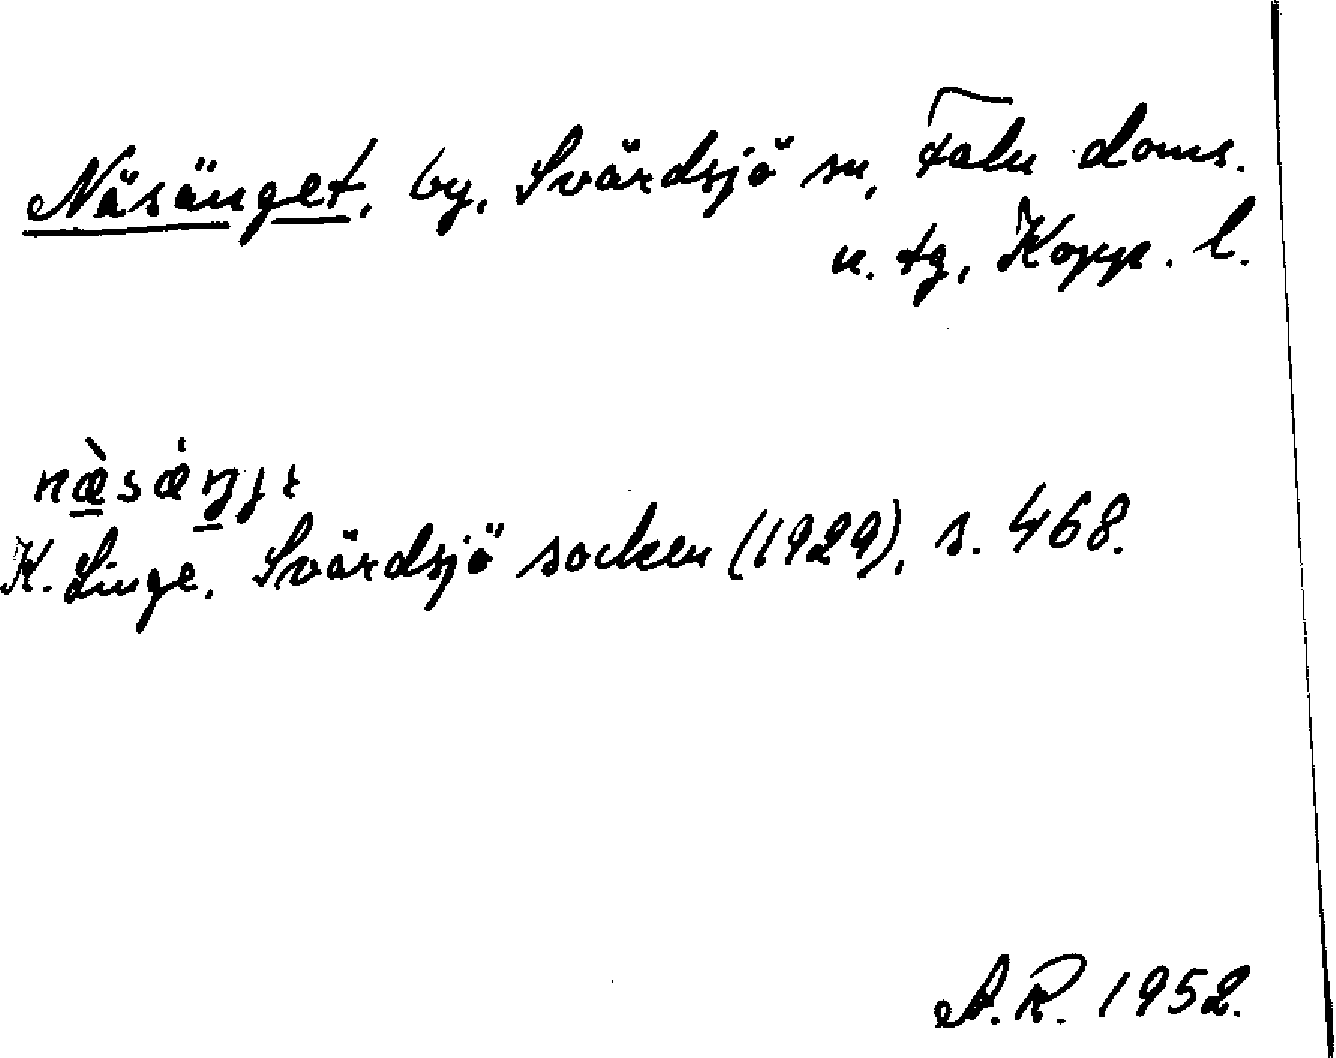 Näsänget, by, Svärdsjö sn, Falu doms.
n. tg, Kopp. l.
næ̀sæ̇ŋɟɩ
K. Linge, Svärdsjö socken (1929), s. 468.
A.R. 1952.